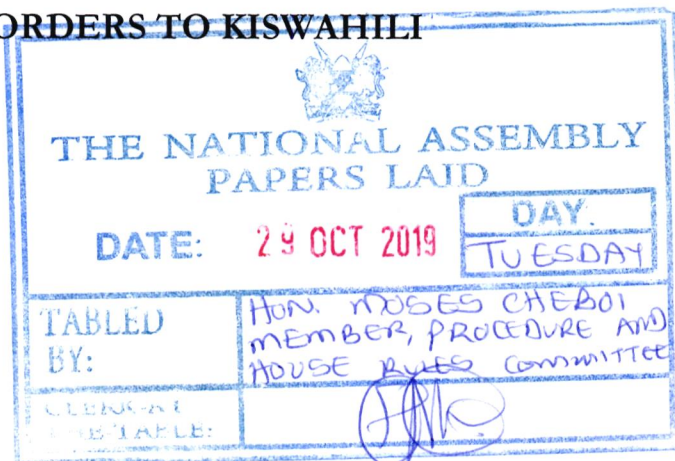 ORDERS TO KISWAHILI
THE NATIONAL ASSEMBLY
PAPERS LAID
DATE: 29 OCT 2019
DAY.
TUESDAY
TABLED
BY:
HON. MOSES CHEBOI
MEMBER, PROCEDURE AND
HOUSE RULES COMMITTEE
CLERK-AT
THE-TABLE: